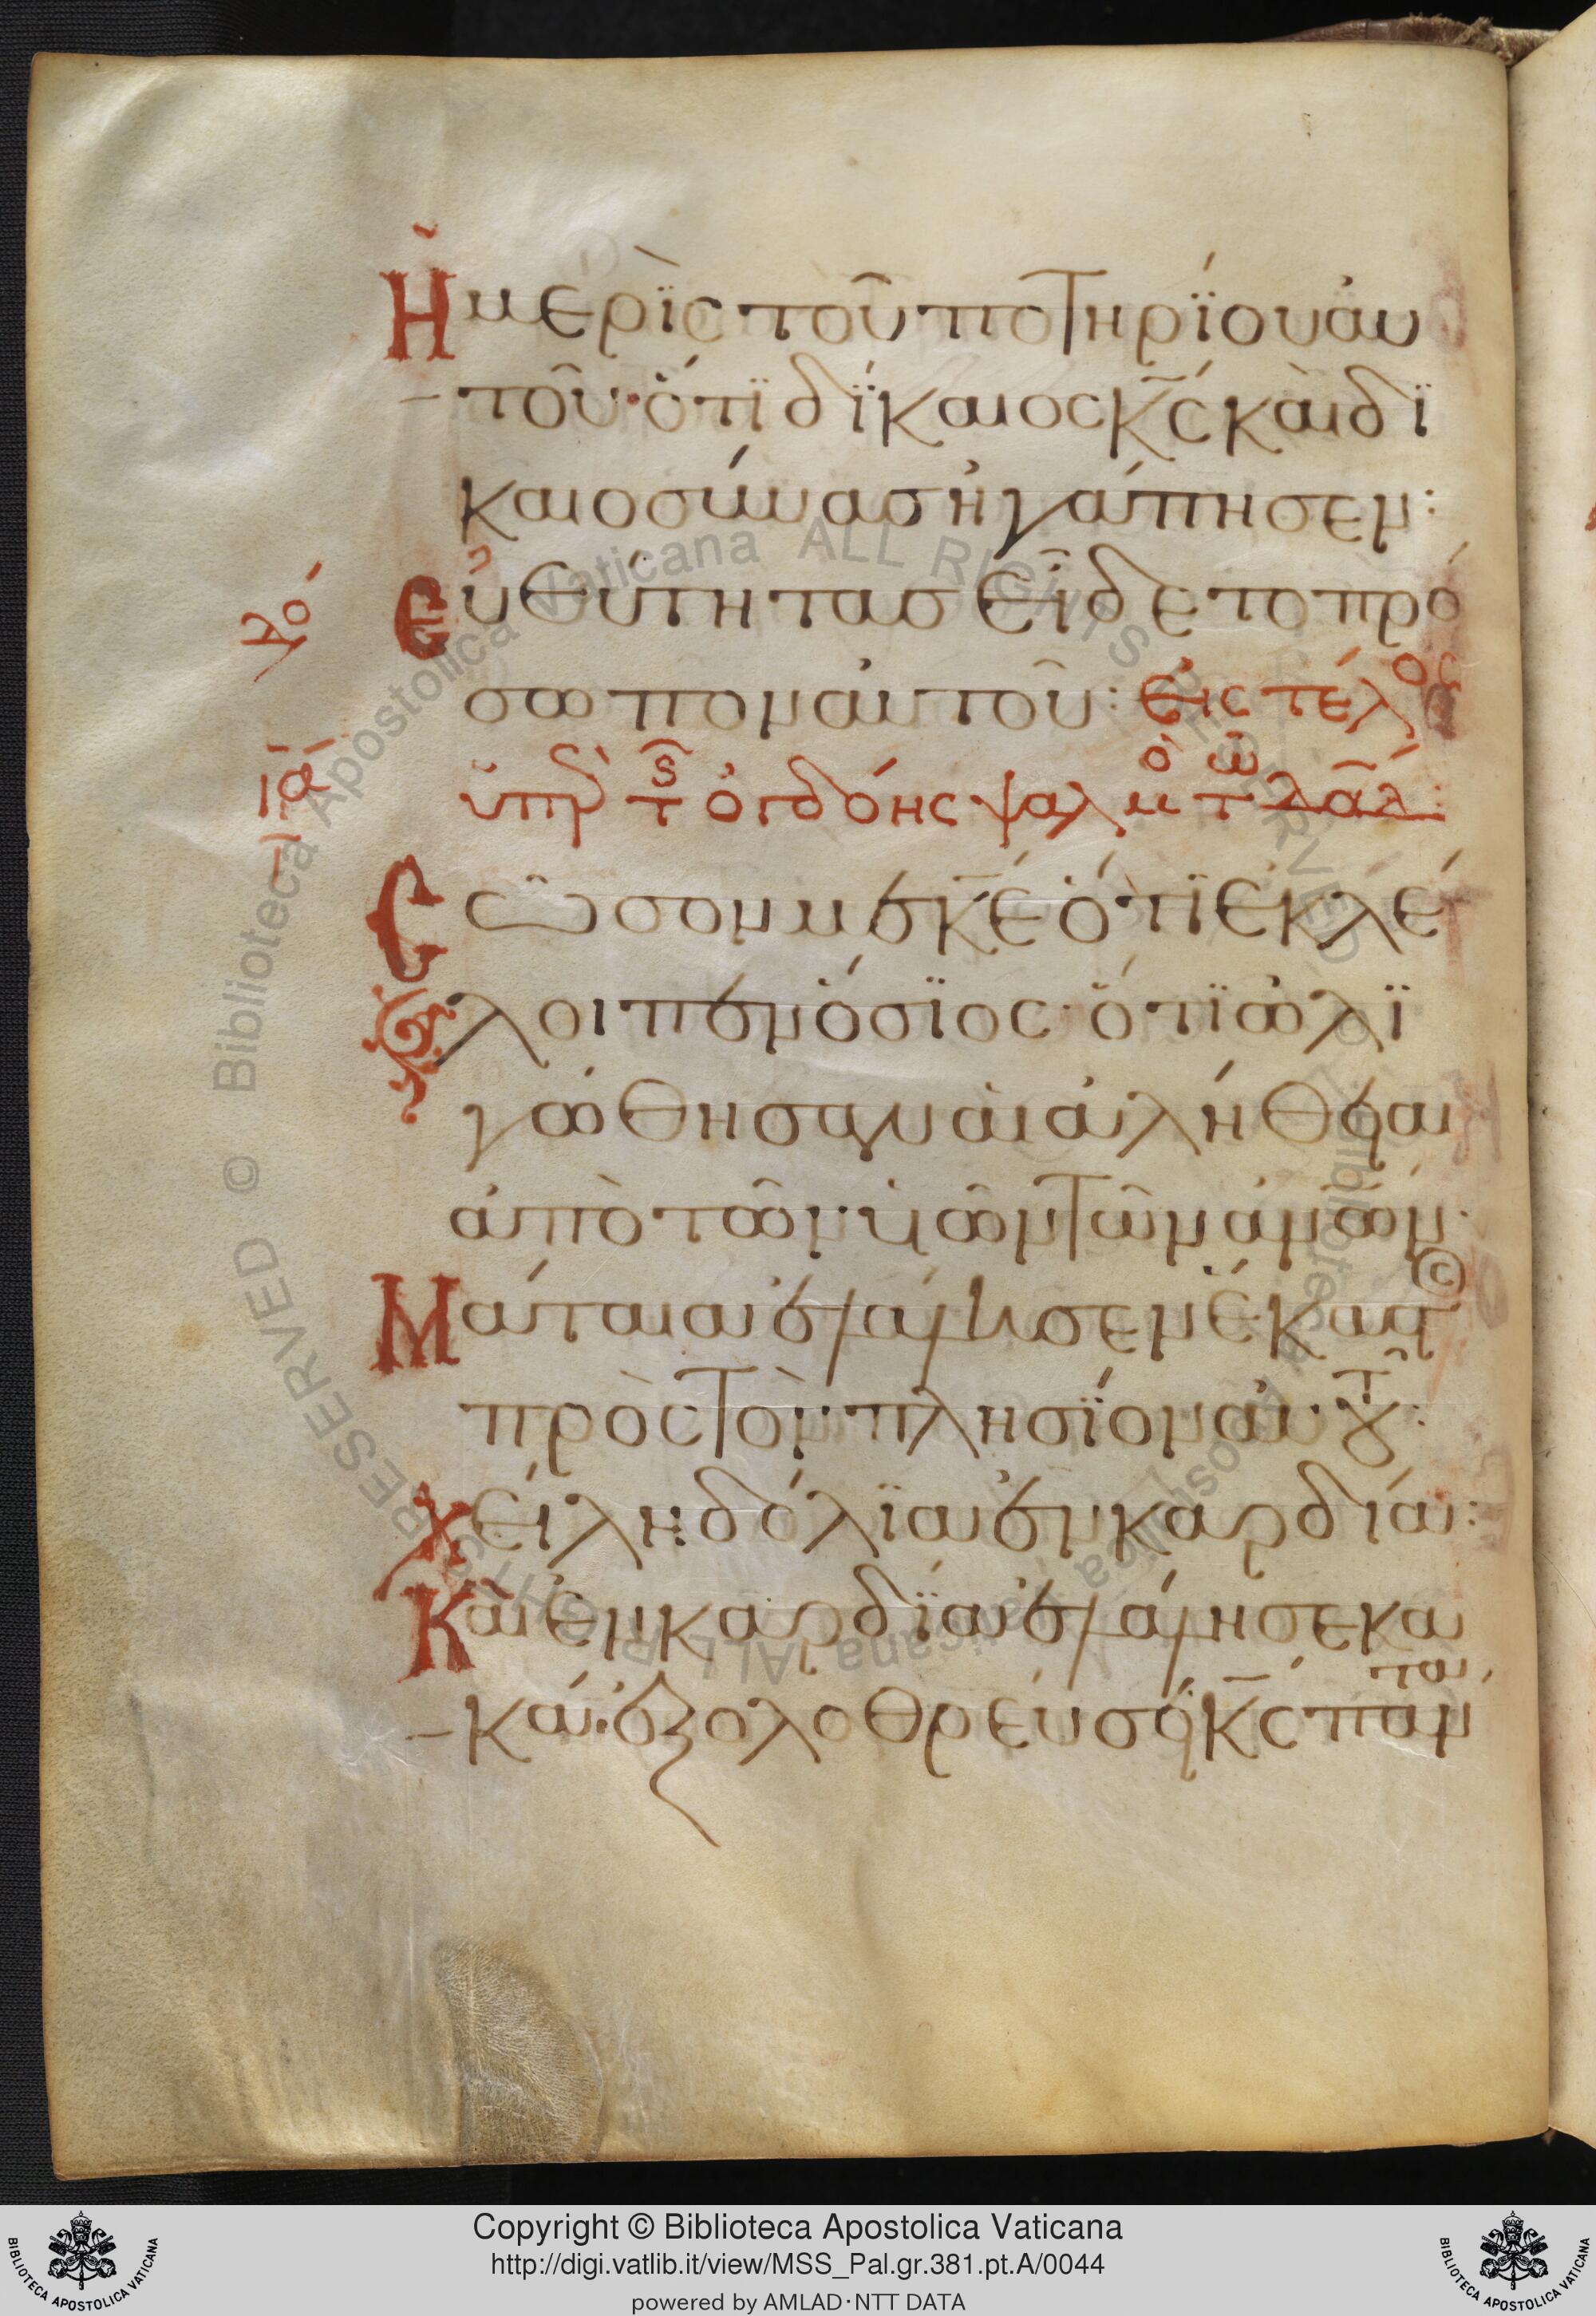 Ἡ μερὶς τοῦ ποτηρίου αυ
τοῦ· ὅτι δίκαιος κ̅ς καὶ δι
καιοσύνας ἠγάπησεν:
Εὐθύτητας εἶδε το πρό
σωπον αὐτοῦ: εἰς τέλος
ὑπὲρ τῆς ὀγδόης ψαλμὸς τῶ δα̅δ:
ια
Σῶσον με κ̅ε ὅτι ἐκλέ
λοιπεν ὅσιος· ὅτι ὠλι
γώθησαν αἱ ἀλήθειαι
ἀπὸ τῶν υἱῶν τῶν ἀν̅ων·
Μάταια ἐλάλησεν ἕκαστος
πρὸς τὸν πλησίον αὐτοῦ:
Χείλη δόλια ἐν καρδία:
Καὶ ἐν καρδία ἐλάλησε κα
κά· ἐξολοθρεύσει κ̅ς πάντα
Copyright © Biblioteca Apostolica Vaticana
http://digi.vatlib.it/view/MSS_Pal.gr.381.pt.A/0044
powered by AMLAD·NTT DATA
BIBLIOTECA APOSTOLICA VATICANA
BIBLIOTECA APOSTOLICA VATICANA
© Biblioteca Apostolica Vaticana ALL RIGHTS RESERVED